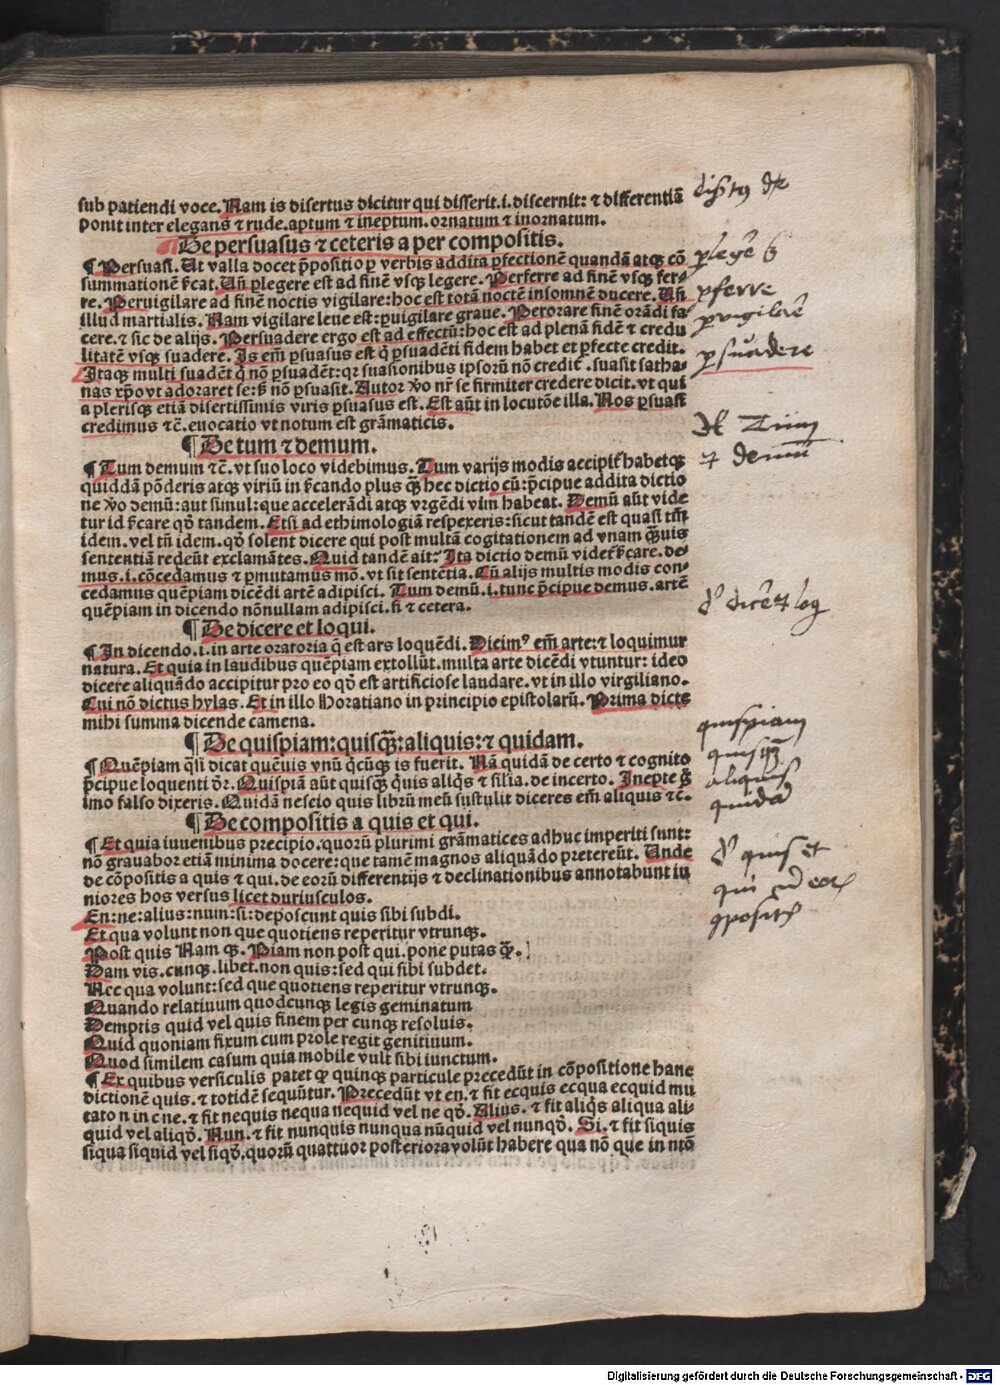 sub patiendi voce. Nam is disertus dicitur qui disserit .i. discernit: ⁊ differentiā
ponit inter elegans ⁊ rude. aptum ⁊ ineptum. ornatum ⁊ inornatum.
De persuasus ⁊ ceteris a per compositis.
¶ Persuasi. Ut valla docet p̄positio ꝑ verbis addita ꝑfectionē quandā atqꝫ cō
summationē ẜcat. Uñ ꝑlegere est ad finē vsqꝫ legere. Perferre ad finē vsqꝫ fer-
re. Peruigilare ad finē noctis vigilare: hoc est totā noctē insomnē ducere. Uñ
illud martialis. Nam vigilare leue est: ꝑuigilare graue. Perorare finē orādi fa
cere. ⁊ sic de alijs. Persuadere ergo est ad effectū: hoc est ad plenā fidē ⁊ credu
litatē vsqꝫ suadere. Is em̄ ꝑsuasus est q̇ ꝑsuadēti fidem habet et ꝑfecte credit.
Itaqꝫ multi suadēt q̇ nō ꝑsuadēt: qꝛ suasionibus ipsorū nō credit᷑. suasit satha-
nas xp̄o vt adoraret se: ẜꝫ nō ꝑsuasit. Autor ꝟo nr̄ se firmiter credere dicit. vt qui
a plerisqꝫ etiā disertissimis viris ꝑsuasus est. Est aūt in locutōe illa. Nos ꝑsuasi
credimus ⁊c̄. euocatio vt notum est grāmaticis.
¶ De tum ⁊ demum.
¶ Tum demum ⁊c̄. vt suo loco videbimus. Tum varijs modis accipit᷑ habetqꝫ
quiddā pōderis atqꝫ viriū in ẜcando plus q̄ꝫ hec dictio cū: p̄cipue addita dictio
ne ꝟo demū: aut simul: que accelerādi atqꝫ vrgēdi vim habeat. Demū aūt vide
tur id ẜcare qd̄ tandem. Etsi ad ethimologiā respexeris: sicut tandē est quasi tm̄
idem. vel tū idem. qd̄ solent dicere qui post multā cogitationem ad vnam q̄ꝫuis
sententiā redeūt exclamātes. Quid tandē ait: Ita dictio demū videt᷑ ẜcare. de-
mus .i. cōcedamus ⁊ ꝑmutamus mō. vt sit sentētia. Cū alijs multis modis con-
cedamus quēpiam dicēdi artē adipisci. Tum demū .i. tunc p̄cipue demus. artē
quēpiam in dicendo nōnullam adipisci. si ⁊ cetera.
¶ De dicere et loqui.
¶ In dicendo .i. in arte oratoria q̄ est ars loquēdi. Dicimꝰ em̄ arte: ⁊ loquimur
natura. Et quia in laudibus quēpiam extollūt. multa arte dicēdi vtuntur: ideo
dicere aliquādo accipitur pro eo qd̄ est artificiose laudare. vt in illo virgiliano.
Cui nō dictus hylas. Et in illo Horatiano in principio epistolarū. Prima dicte
mihi summa dicende camena.
¶ De quispiam: quisq̄ꝫ: aliquis: ⁊ quidam.
¶ Quēpiam q̄si dicat quēuis vnū q̇cūqꝫ is fuerit. Nā quidā de certo ⁊ cognito
p̄cipue loquenti dr̄. Quispiā aūt quisqꝫ q̇uis aliq̇s ⁊ sil'ia. de incerto. Inepte q̄ꝫ
imo falso dixeris. Quidā nescio quis librū meū sustulit diceres em̄ aliquis ⁊c̄.
¶ De compositis a quis et qui.
¶ Et quia iuuenibus precipio. quorū plurimi grāmatices adhuc imperiti sunt:
nō grauabor etiā minima docere: que tamē magnos aliquādo pretereūt. Unde
de cōpositis a quis ⁊ qui. de eorū differentijs ⁊ declinationibus annotabunt iu
niores hos versus licet duriusculos.
En: ne: alius: num: si: deposcunt quis sibi subdi.
Et qua volunt non que quotiens reperitur vtrunqꝫ.
Post quis Nam qꝫ. Piam non post qui. pone putas q̄ꝫ.
Dam vis. cunqꝫ. libet. non quis: sed qui sibi subdet.
Nec qua volunt: sed que quotiens reperitur vtrunqꝫ.
Quando relatiuum quodcunqꝫ legis geminatum
Demptis quid vel quis finem per cunqꝫ resoluis.
Quid quoniam fixum cum prole regit genitiuum.
Quod similem casum quia mobile vult sibi iunctum.
¶ Ex quibus versiculis patet ꝙ quinqꝫ particule precedūt in cōpositione hanc
dictionē quis. ⁊ totidē sequūtur. Precedūt vt en. ⁊ fit ecquis ecqua ecquid mu
tato n in c ne. ⁊ fit nequis nequa nequid vel ne qd̄. Alius. ⁊ fit aliq̇s aliqua ali-
quid vel aliqd̄. Nun. ⁊ fit nunquis nunqua nūquid vel nunqd̄. Si. ⁊ fit siquis
siqua siquid vel siqd̄. quorū quattuor posteriora volūt habere qua nō que in ntō
ꝑlegē
ꝑferre
ꝑvigilarē
ꝑsuadere
De Tum
⁊ demū
quispiam
quisq̄ꝫ
aliquis
quidā
quis et
Digitalisierung gefördert durch die Deutsche Forschungsgemeinschaft - DFG